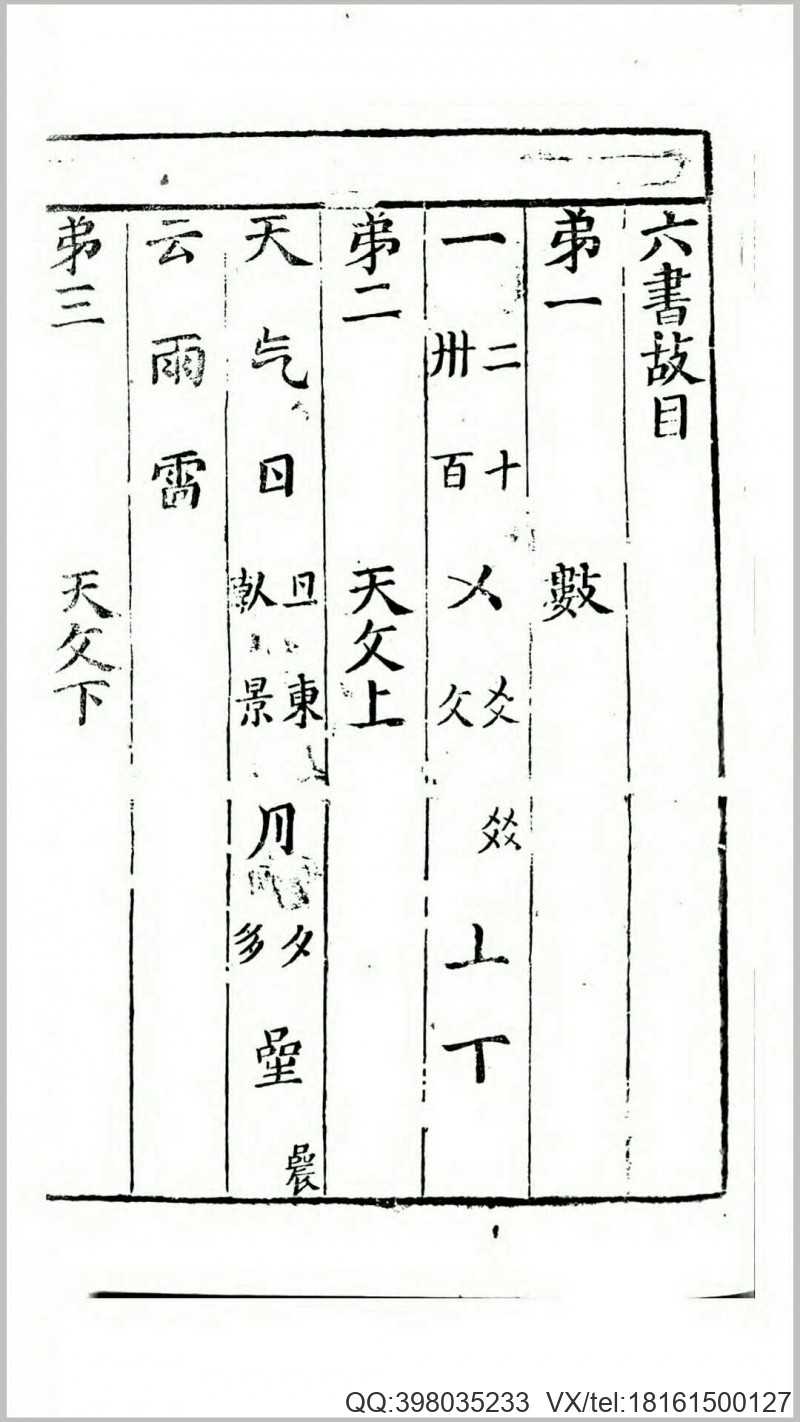 六書故目
弟一 數
一 二 卅 十 百 㐅 爻 文 㸚 丄 丅
弟二 天文上
天 气 日 旦 倝 東 景 月 夕 多 曐 曟
云 雨 雷
弟三 天文下
QQ:398035233 VX/tel:18161500127